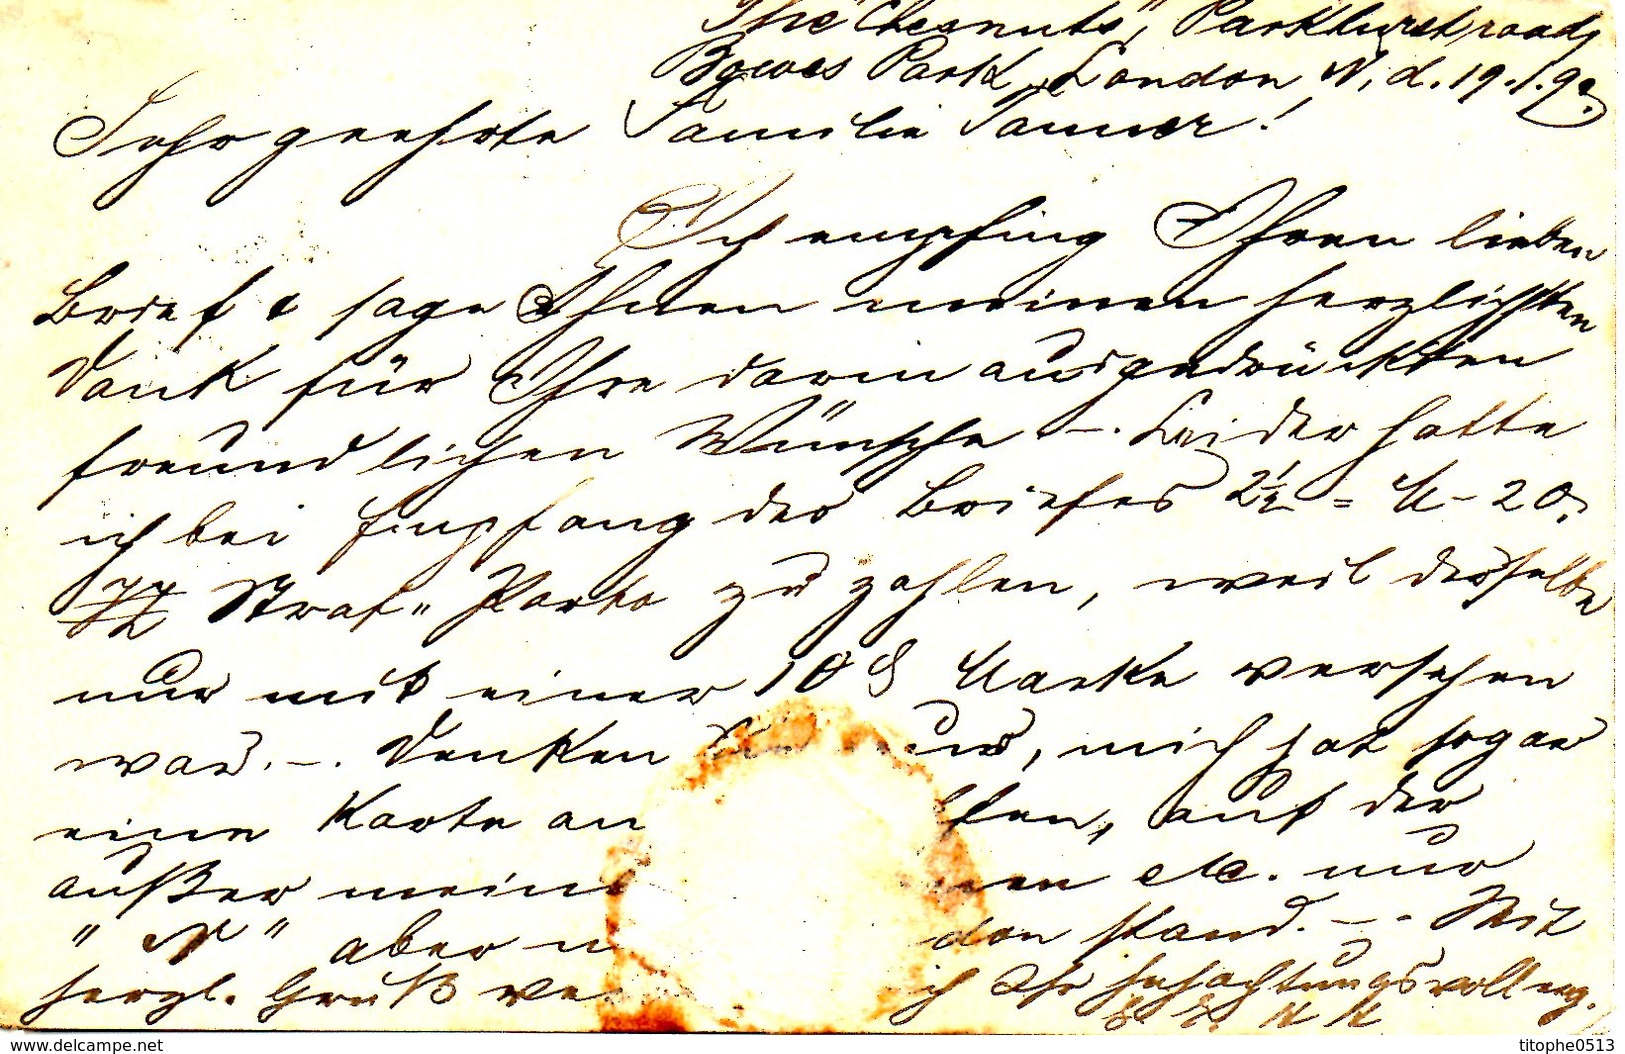 "The Chesnuts", Parkhurst road,
Bowes Park, London N, d. 19.1.92.
Sehr geehrte Familie Tanner!
Ich empfing Ihren lieben
Brief & sage Ihnen meinen herzlichsten
Dank für Ihre darin ausgedrückten
freundlichen Wünsche -. Leider hatte
ich bei Empfang des Briefes 2½ = M - 20.
Straf" Porto zu zahlen, weil derselbe
nur mit einer 10 ₰ Marke versehen
war. -. Denken, mich hat sogar
eine Karte an fen, auf der
außer meine nen etc. nur
"N" aber n don stand. - - Mit
herzl. Gruß ve ich Ihr hochachtungsvoll erg.